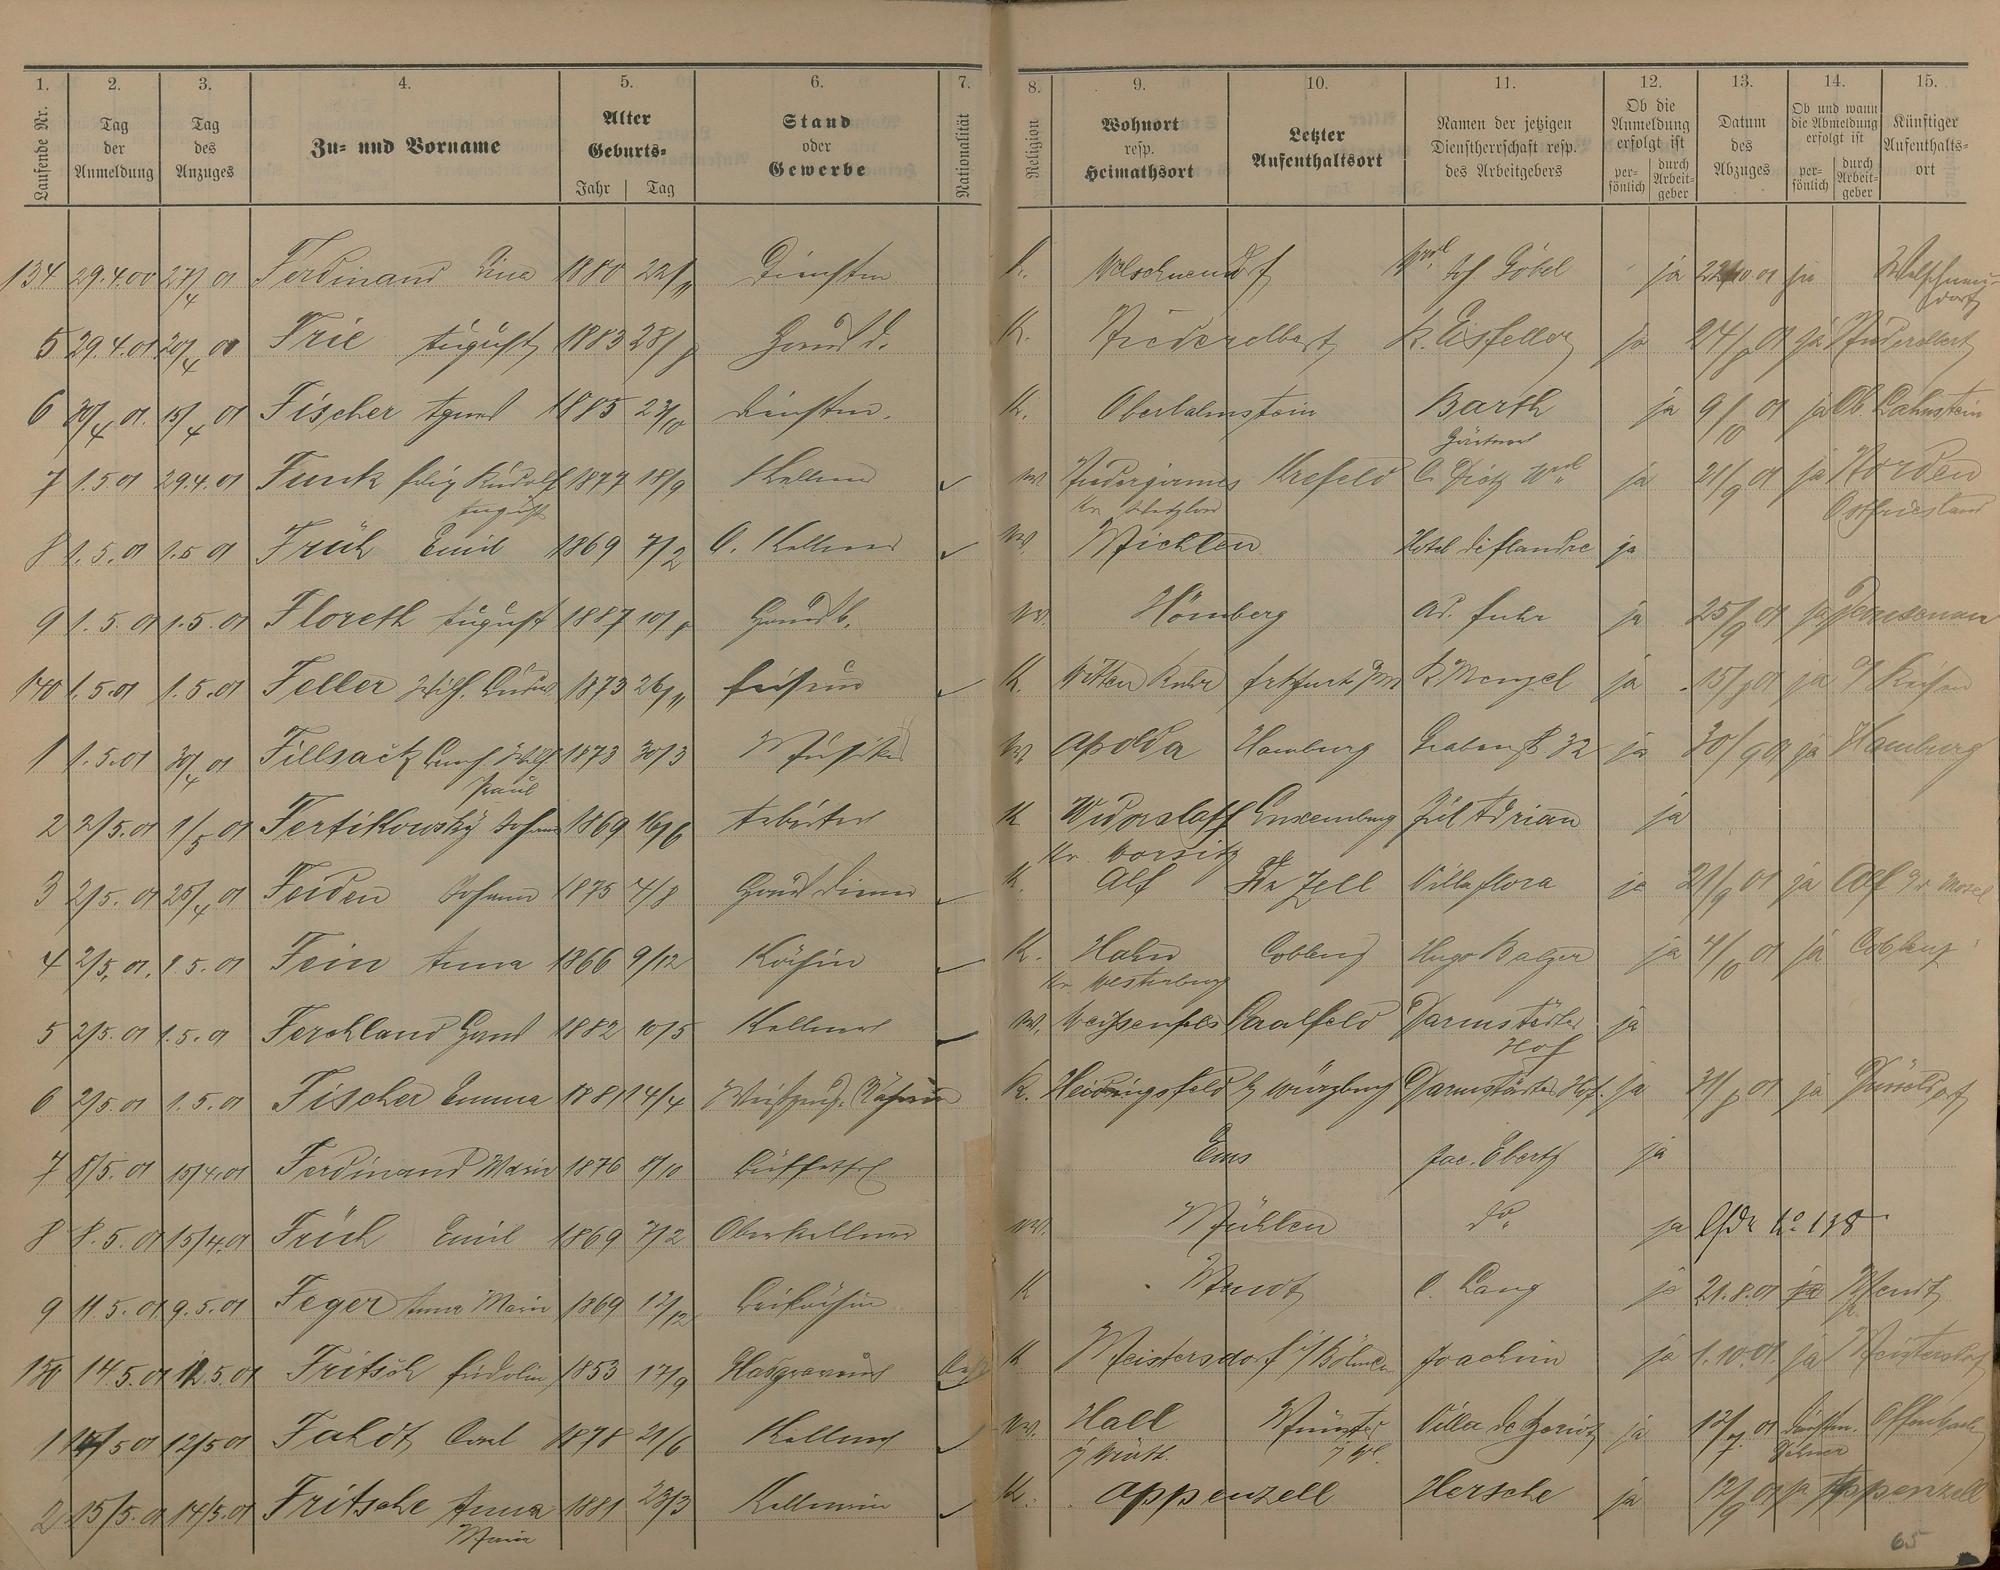 1. 2. 3. 4. 5. 6. 7. 8. 9. 10. 11. 12. 13. 14. 15.
Laufende Nr. Tag der Anmeldung Tag des Anzuges Zu- und Vorname Alter Geburts- Jahr Tag Stand oder Gewerbe Nationalität Religion Wohnort resp. Heimathsort Letzter Aufenthaltsort Namen der jetzigen Dienstherrschaft resp. des Arbeitgebers Ob die Anmeldung erfolgt ist per- sönlich durch Arbeit- geber Datum des Abzuges Ob und wann die Abmeldung erfolgt ist per- sönlich durch Arbeit- geber Künftiger Aufenthalts- ort
134 29.4.00 27/4 01 Ferdinand Lina 1880 22/11 Dienstm K. Welschneudorf Jos Göbel ja 22/10 01 ja Welschneu-
dorf
5 29.4.01 20/4 00 Frie August 1883 28/8 Hausd. K. Niederelbert K. Eisfeller ja 24/8 01 ja Niederelbert
6 30/4 01. 15/4 01 Fischer Agnes 1885 23/10 Dienstm. K. Oberlahnstein Barth ja 9/10 01 ja Ob. Lahnstein
Gärtner
7 1.5 01 29.4.01 Funk Rudolf 1877 18/9 Kellner W Niedergirmes Krefeld C. Dietz Wwe ja 21/9 01 ja Norden
August Kr. Wetzlar Ostfriesland
8 1.5.01 1.5 01 Früh Emil 1869 7/2 O. Kellner W Miehlen Hotel de flandre ja
9 1.5.01 1.5.01 Floreth August 1887 10/8 Hausb. W. Hömberg Ad. Fuhr ja 25/9 01 ja
140 1.5.01 1.5.01 Feller Wilh. 1873 26/11 Friseur K. Witten Ruhr Frkfurt a/M K Menzel ja 15/9 01 ja a/ Reisen
1 1.5.01 30/4 01 Fillsack Wilh 1873 30/3 Musiker W Apolda Hamburg Grabenstr. 32 ja 30/9 01 ja Hamburg
Paul
2 2/5.01 1/5 01 Fertikowsky Johann 1869 16/6 Arbeiter K Luxemburg Jul Adrian ja
Kr.
3 2/5.01 25/4 01 Feiden Johann 1875 4/8 Hausdiener K. Alf Kr Zell Villa flora ja 21/9 01 ja Alf a/d Mosel
4 2/5.01. 1.5.01 Fein Anna 1866 9/12 Köchin K. Hahn Coblenz Hugo Balzer ja 4/10 01 ja Coblenz
Kr. Westerburg
5 2/5.01 1.5.01 Ferchland Hans 1882 10/5 Kellner W. Weissenfels Saalfeld Darmstädter ja
Hof
6 2/5.01 1.5.01 Fischer Emma 1881 14/4 Weißzeug. Näherin K. Heidingsfeld b/ Würzburg Darmstädter Hof. ja 31/8 01 ja Düsseldorf
7 8/5.01 15/4.01 Ferdinand Marie 1876 8/10 Büffetfrl Ems Jac. Ebertz ja
8 8.5.01 15/4.01 Früh Emil 1869 7/2 Oberkellner W. Mühlen do. ja Lfde No 138
9 11.5.01 9.5.01 Feger Anna Maria 1869 12/12 Beiköchin K Mendt C. Lang ja 21.8.01 ja Mendt
150 14.5.01 12.5.01 Fritsch Fridolin 1853 17/9 Glasgraveur K Meistersdorf i/Böhmen Joachim ja 1.10.01. ja Meistersdorf
1 15/5 01 12/5 01 Fahdt Carl 1878 21/6 Kellner W. Hall Münster Villa de Beriot ja 12/7 01 Offenbach
i/ i/W.
2 15/5.01 14/5.01 Fritsche Anna 1881 23/3 Kellnerin K. Appenzell Hersche ja 12/9 01 ja Appenzell
Maria
65